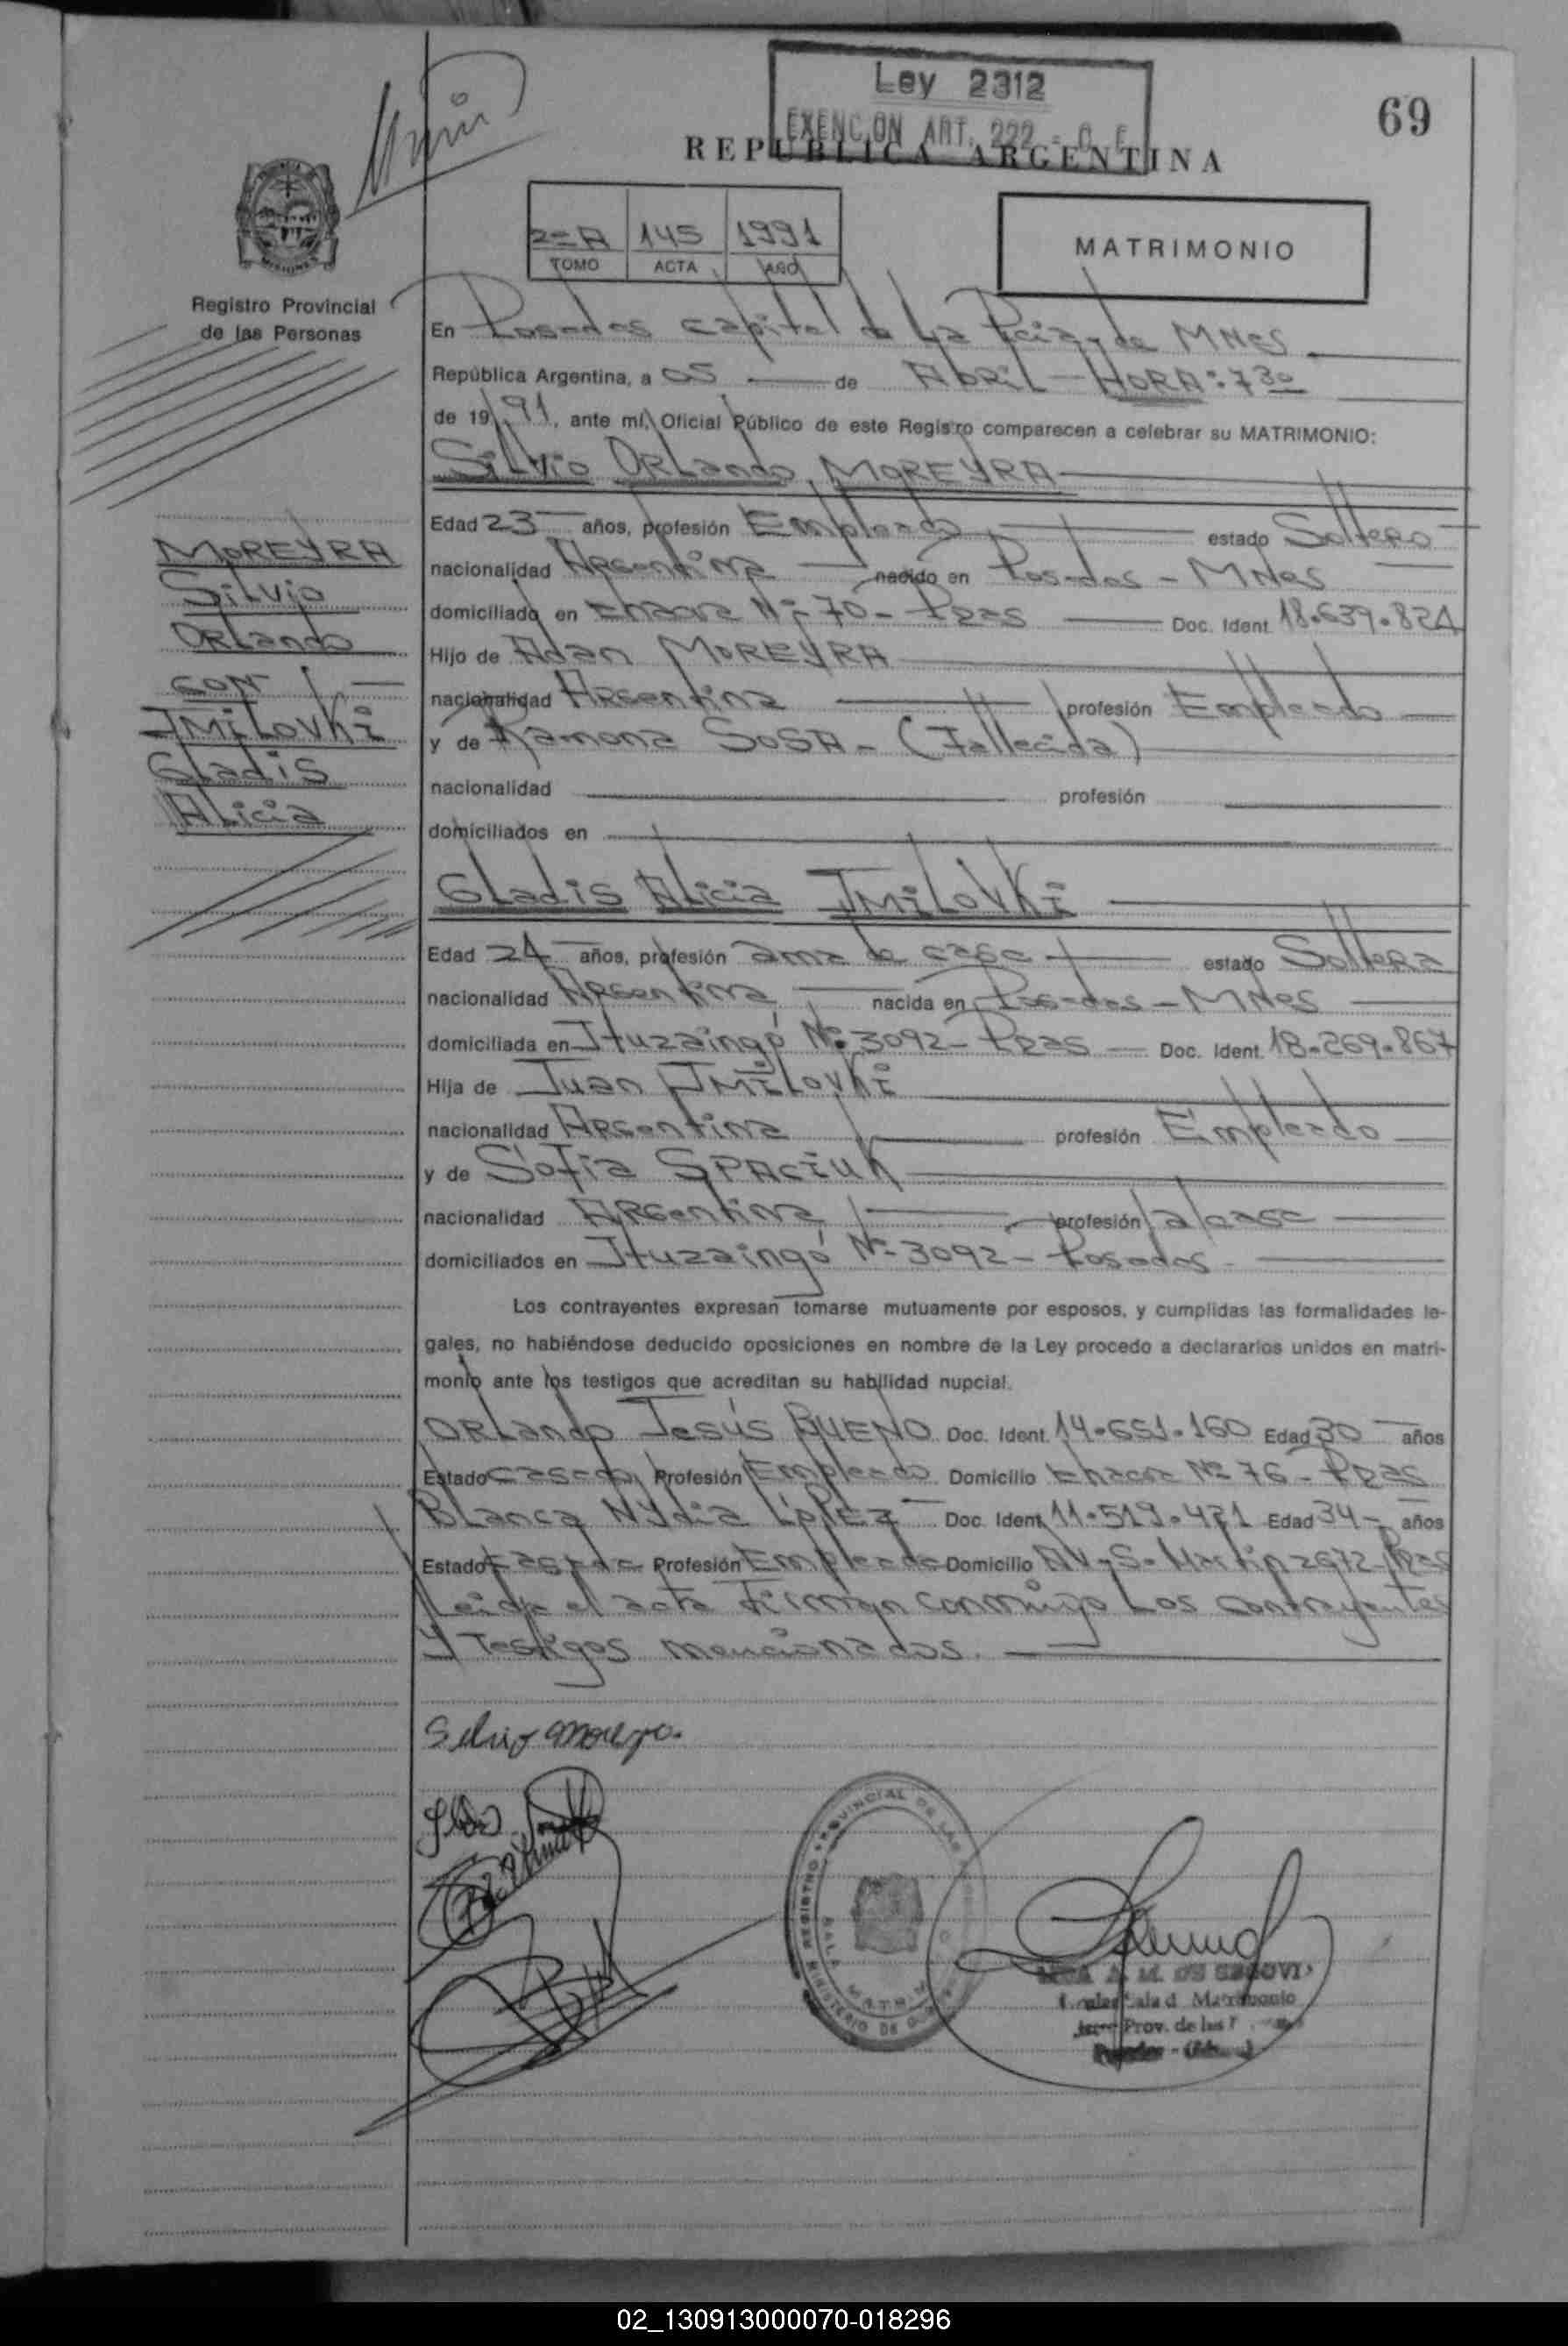 Ley 2312
EXENCION ART. 222 - C. F.
69
REPUBLICA ARGENTINA
2=A 145 1991
TOMO ACTA AÑO
MATRIMONIO
Registro Provincial
de las Personas
En Posadas capital de La Pcia. de MNes
República Argentina, a 05 de ABRIL - HORA: 7 30
de 19 91, ante mí, Oficial Público de este Registro comparecen a celebrar su MATRIMONIO:
Silvio ORLando MOREYRA
Edad 23 años, profesión Empleado estado Soltero
nacionalidad Argentina nacido en Posadas - MNes
domiciliado en chacra Nº 70 - Pdas Doc. Ident. 18.639.824
Hijo de Adan MOREYRA
nacionalidad Argentina profesión Empleado
y de Ramona SOSA - (Fallecida)
nacionalidad profesión
domiciliados en
MOREYRA
Silvio
ORLando
CON
JMiLOVKi
GLadiS
ALicia
GLadiS ALicia JMiLOVKi
Edad 24 años, profesión ama de casa estado Soltera
nacionalidad Argentina nacida en Posadas - MNes
domiciliada en Ituzaingó Nº 3092 - Pdas Doc. Ident. 18.269.867
Hija de Juan JMiLOVKi
nacionalidad Argentina profesión Empleado
y de Sofia SPACiUK
nacionalidad Argentina profesión a/casa
domiciliados en Ituzaingó Nº 3092 - Posadas
Los contrayentes expresan tomarse mutuamente por esposos, y cumplidas las formalidades le-
gales, no habiéndose deducido oposiciones en nombre de la Ley procedo a declararlos unidos en matri-
monio ante los testigos que acreditan su habilidad nupcial.
ORLando Jesús BUENO Doc. Ident. 14.651.160 Edad 30 años
Estado casado Profesión Empleado Domicilio chacra Nº 76 - Pdas
BLanca Nydia LóPEZ Doc. Ident. 11.519.471 Edad 34 años
Estado casada Profesión Empleada Domicilio AV. S. Martin 2672 - Pdas
Leida el acta firman conmigo Los contrayentes
y Testigos mencionados.
Silvio Moreyra.
REGISTRO PROVINCIAL DE LAS
MINISTERIO DE
SALA MATRIM
A. M. DE SEGOVI
Sala d Matrimonio
Prov. de las
02_130913000070-018296